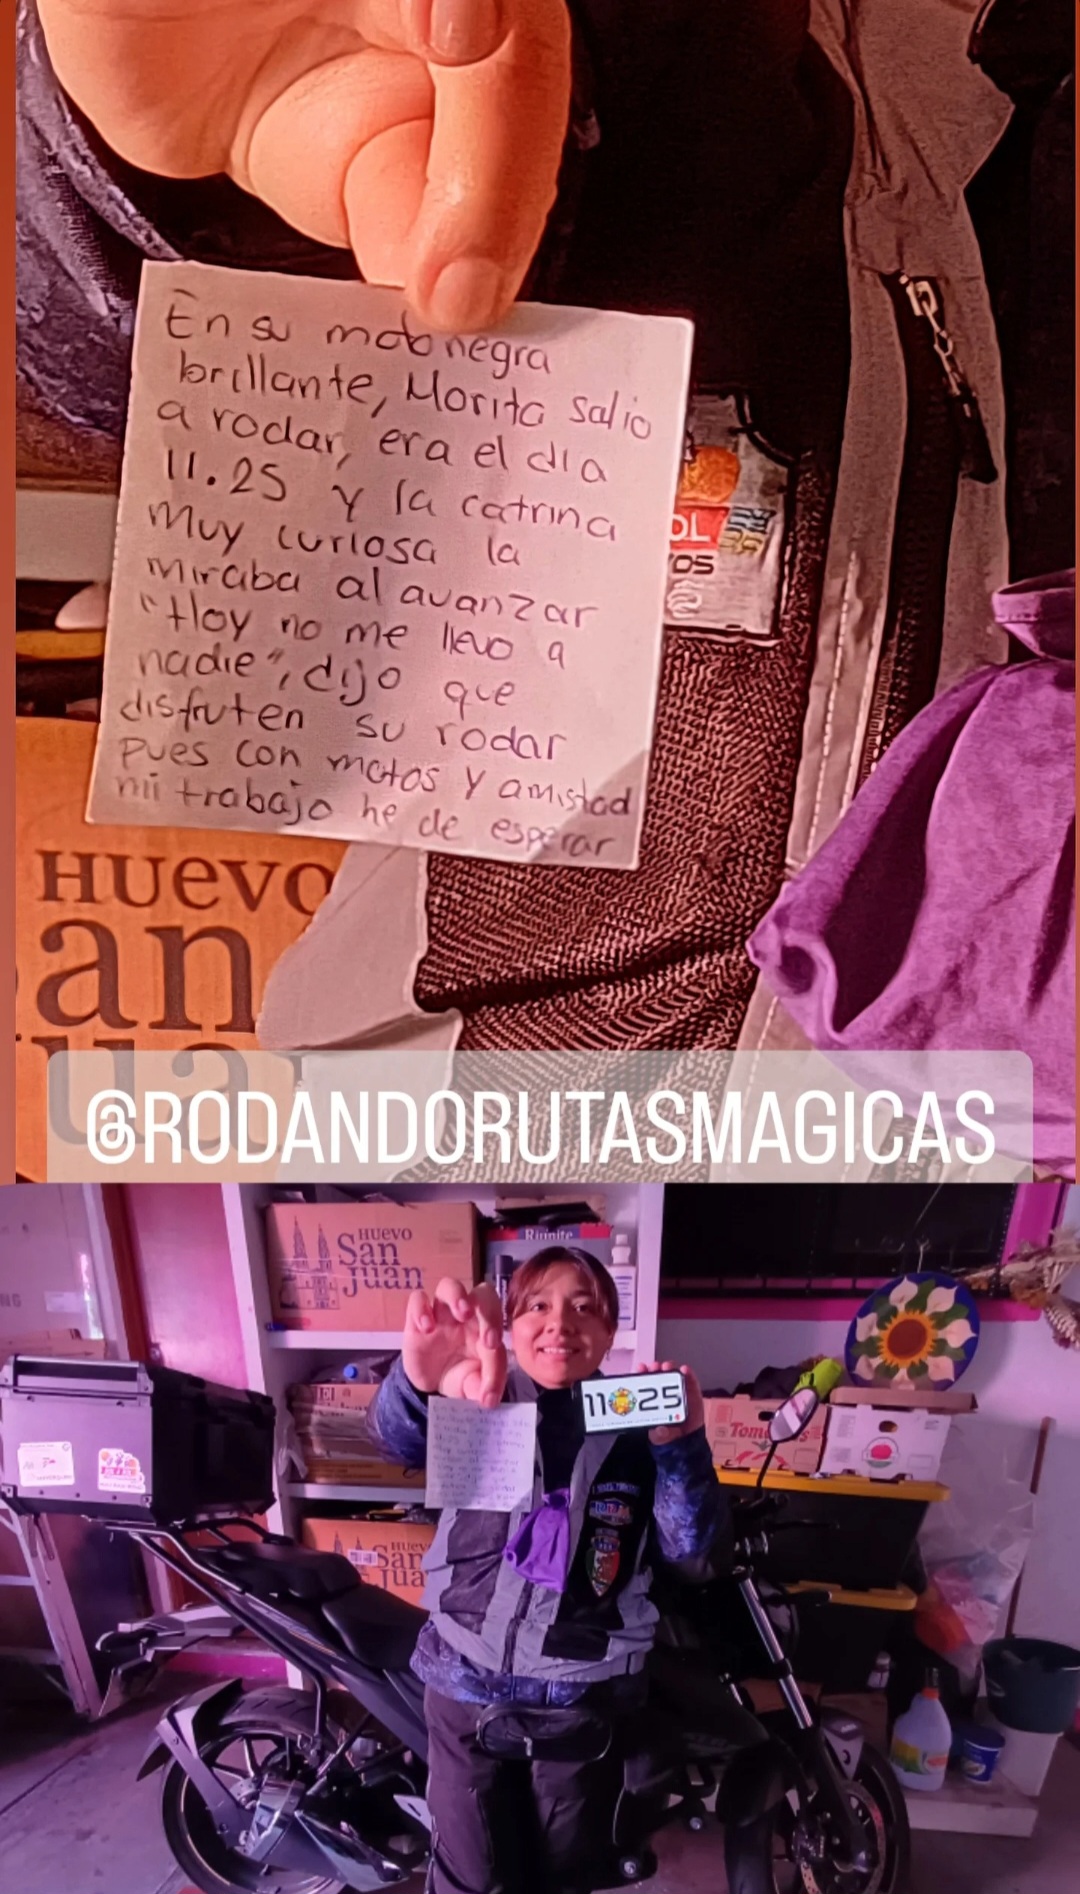 En su moto negra
brillante, Morita salio
a rodar, era el dia
11.25 y la catrina
Muy curiosa la
miraba al avanzar
"Hoy no me llevo a
nadie", dijo que
disfruten su rodar
pues con motos y amistad
mi trabajo he de esperar
OL
OS
HUEVO
an
Jua
@RODANDORUTASMAGICAS
HUEVO
San
Juan
Riunite
11 25
Tom
HUEV
San
Jua